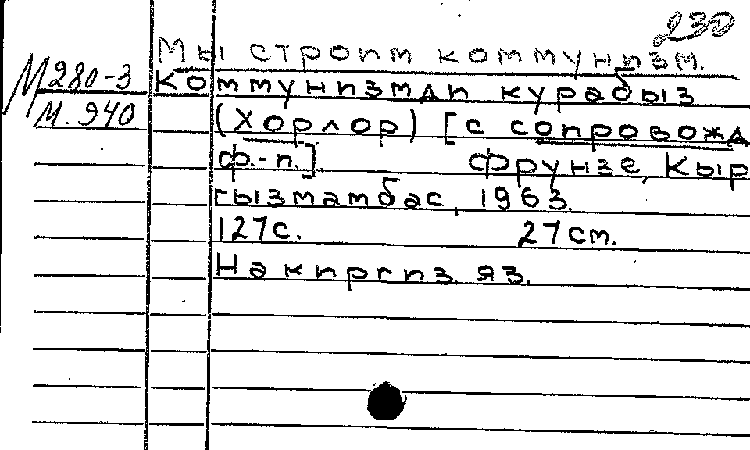 230
Мы строим коммунизм.
М280-3
Коммунизмди курабыз
М.940
(Хорлор) [с сопровожд
ф.-п.] Фрунзе, Кыр
гызмамбас, 1963.
127с. 27см.
На киргиз. яз.